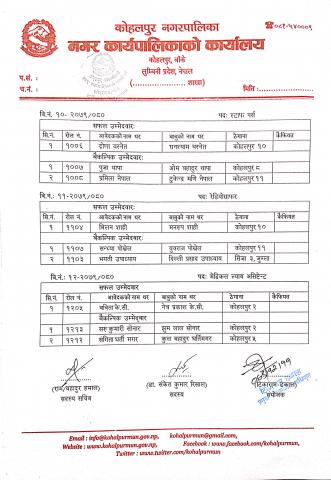 कोहलपुर नगरपालिका
नगर कार्यपालिकाको कार्यालय
कोहलपुर, बाँके
लुम्बिनी प्रदेश, नेपाल
(.................... शाखा)
☎०८१-५४०००९
प.सं. :
च.नं. :
मिति :
वि.नं. १०- २०७९/०८० पद: स्टाफ नर्स
सफल उम्मेदवार:
सि.नं. रोल नं. आवेदकको नाम थर बाबुको नाम थर ठेगाना कैफियत
१ १००६ दीपा वस्नेत घनश्याम वस्नेत कोहलपुर १०
बैकल्पिक उम्मेदवार:
१ १००७ पूजा थापा ओम बहादुर थापा कोहलपुर ८
२ १००८ प्रमिला नेपाल टुकेन्द्र मणि नेपाल कोहलपुर ११
वि.नं. ११-२०७९/०८० पद: रेडियोग्राफर
सफल उम्मेदवार:
सि.नं. रोल नं. आवेदकको नाम थर बाबुको नाम थर ठेगाना कैफियत
१ ११०४ मिलन शाही मनरुप शाही कोहलपुर १०
बैकल्पिक उम्मेदवार:
१ ११०७ सन्ध्या पोख्रेल युवराज पोख्रेल कोहलपुर ११
२ ११०३ भगती उपाध्याय डिल्ली प्रसाद उपाध्याय सिंजा ३, जुम्ला
वि.नं.: १२-२०७९/०८० पद: मेडिकल ल्याव असिष्टेन्ट
सफल उम्मेदवार:
सि.नं. रोल नं. आवेदकको नाम थर बाबुको नाम थर ठेगाना कैफियत
१ १२०५ बबिता के.सी. नेत्र प्रकाश के.सी. कोहलपुर २
बैकल्पिक उम्मेदवार
१ १२१२ सरु कुमारी सोनार झुम लाल सोनार कोहलपुर २
२ १२१३ संगिता घर्ती मगर कुल बहादुर घर्तिमगर कोहलपुर ५
(राज बहादुर हमाल)
सदस्य सचिव
(डा. संकेत कुमार रिसाल)
सदस्य
(टिकाराम ढकाल)
संयोजक
Email : info@kohalpurmun.gov.np, kohalpurmun@gmail.com,
Website : www.kohalpurmun.gov.np, Facebook : www.facebook.com/kohalpurmun,
Twitter : www.twitter.com/kohalpurmun